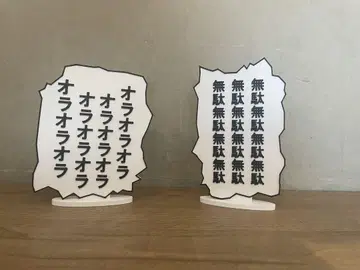 オラオラオラ
オラオラオラ
オラオラオラ
オラオラオラ
無駄無駄無駄無駄
無駄無駄無駄無駄
無駄無駄無駄無駄